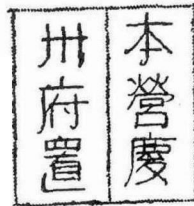 本營慶
州府置